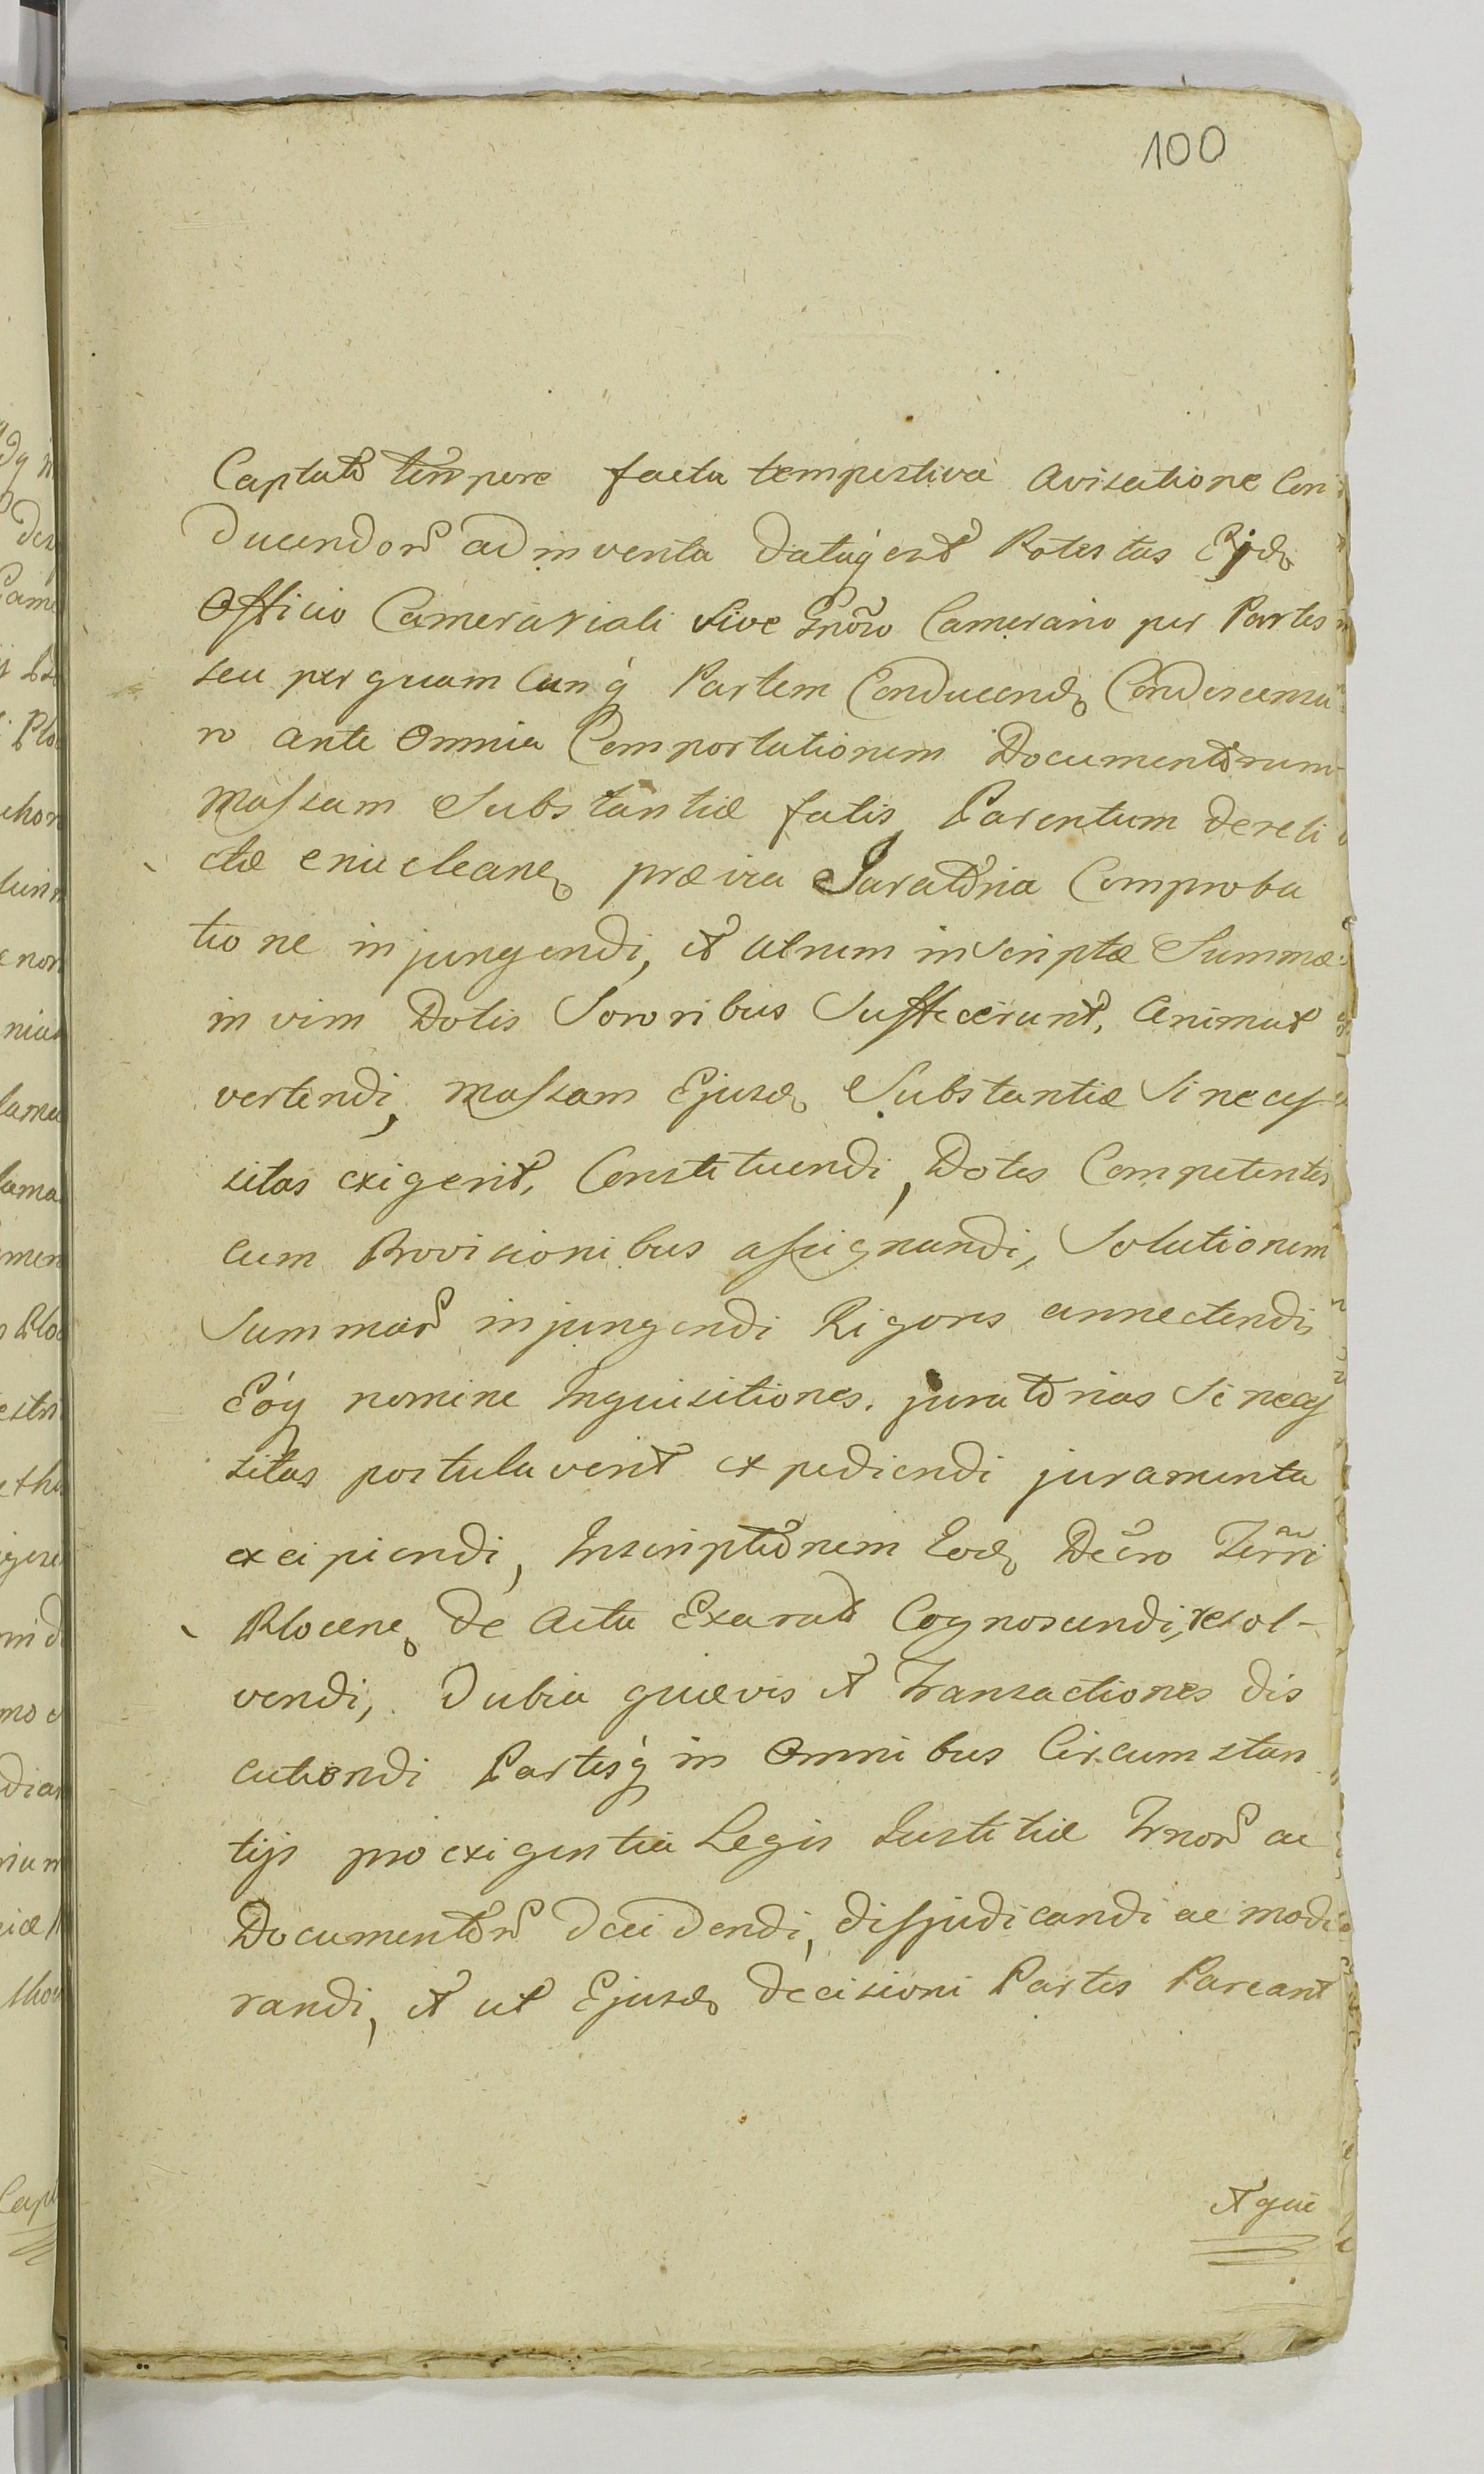 100
Captato tempore facta tempestiva avisatione Con
ducendor ad inventa datáq erit Potestas Ejd
Officio Camerariali sive Gnoso Camerario per Partes
seu per quam cunq Partem Conducend Condescensu
ro ante omnia Comportationem Documentorum
Massam Substantiæ fatis Parentum dereli
ctæ enucleand prævia Juratoria Comproba
tione injungendi, et utrum inscriptæ Summæ
in vim Dotis Sororibus Suffecerunt, animad
vertendi, Massam Ejusd Substantiæ si neces
sitas exigerit, Constituendi, Dotes Competentes
cum Provisionibus assignandi, Solutionem
Summar injungendi Rigores annectendi,
Eóq nomine Inquisitiones juratorias si neces
sitas postulaverit expediendi juramenta
excipiendi, Inscriptionem Eod Decro Terri
Plocen de actu Exarat Cognoscendi, resol-
vendi, Dubia quævis et Transactiones dis
cutiendi Partesq in omnibus Circumstan
tijs pro exigentia Legis Justitiæ Trnor ac
Documentor decidendi, disjudicandi ac mode
randi, et ut Ejusd decisioni Partes Pareant
et qui